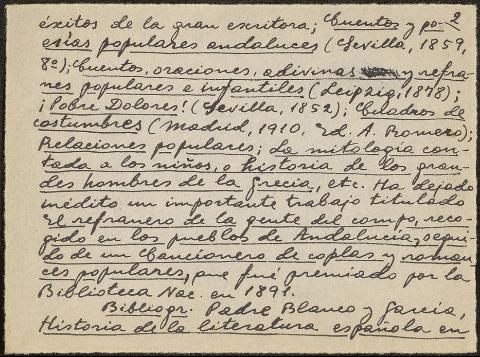 2
éxitos de la gran escritora; Cuentos y po-
esías populares andaluces (Sevilla, 1859,
8º); Cuentos, oraciones, adivinas y refra-
nes populares e infantiles (Leipzig, 1878);
¡Pobre Dolores! (Sevilla, 1852); Cuadros de
costumbres (Madrid, 1910. Ed. A. Romero);
Relaciones populares; La mitología con-
tada a los niños, o historia de los gran-
des hombres de la Grecia, etc. Ha dejado
inédito un importante trabajo titulado
El refranero de la gente del campo, reco-
gido en los pueblos de Andalucía, segui-
do de un Cancionero de coplas y roman-
ces populares, que fué premiado por la
Biblioteca Nac. en 1891.
Bibliogr. Padre Blanco y García,
Historia de la literatura española en